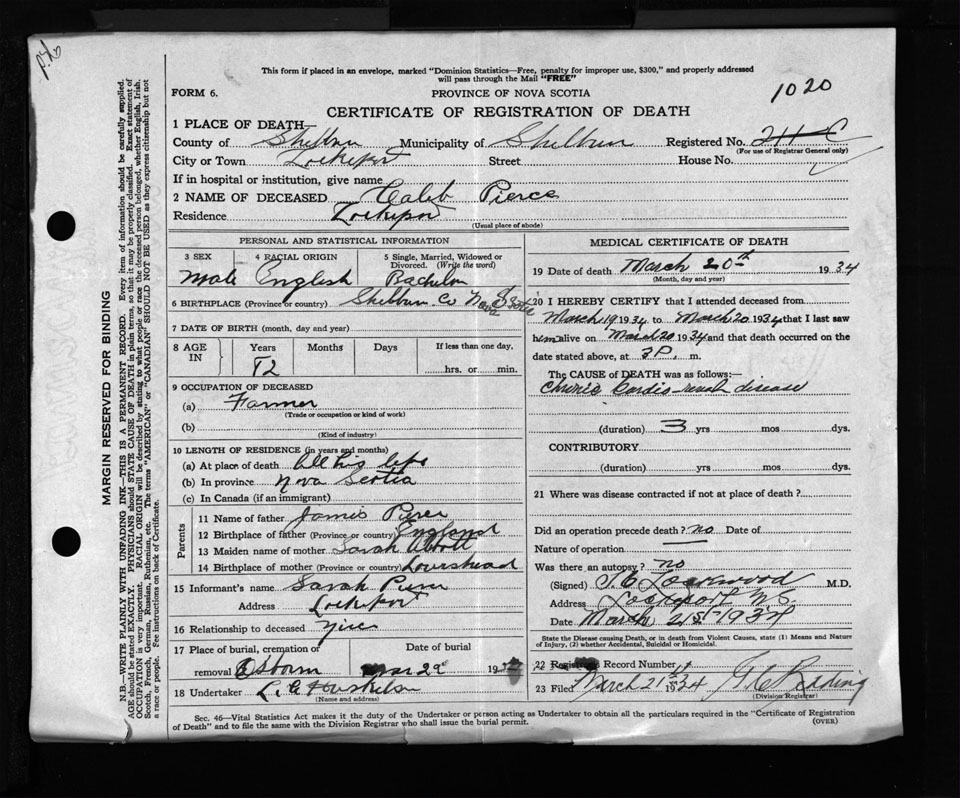 P.S.
This form if placed in an envelope, marked "Dominion Statistics—Free, penalty for improper use, $300," and properly addressed
will pass through the Mail "FREE"
FORM 6.
PROVINCE OF NOVA SCOTIA
1020
CERTIFICATE OF REGISTRATION OF DEATH
1 PLACE OF DEATH—
County of Shelburn Municipality of Shelburn Registered No.
(For use of Registrar General only)
City or Town Lockeport Street House No.
If in hospital or institution, give name
2 NAME OF DECEASED Caleb Pierce
Residence Lockeport
(Usual place of abode)
PERSONAL AND STATISTICAL INFORMATION
3 SEX 4 RACIAL ORIGIN 5 Single, Married, Widowed or Divorced. (Write the word)
Male English Bachelor
6 BIRTHPLACE (Province or country) Shelburn Co Nova Scotia
7 DATE OF BIRTH (month, day and year)
8 AGE IN Years Months Days If less than one day,
72 hrs. or min.
9 OCCUPATION OF DECEASED
(a) Farmer
(Trade or occupation or kind of work)
(b)
(Kind of industry)
10 LENGTH OF RESIDENCE (in years and months)
(a) At place of death All his life
(b) In province Nova Scotia
(c) In Canada (if an immigrant)
Parents
11 Name of father James Pierce
12 Birthplace of father (Province or country) England
13 Maiden name of mother Sarah Abbott
14 Birthplace of mother (Province or country)
15 Informant's name Sarah Pierce
Address Lockeport
16 Relationship to deceased
17 Place of burial, cremation or removal Date of burial
Osborn Mar 22 19
18 Undertaker
(Name and address)
MEDICAL CERTIFICATE OF DEATH
19 Date of death March 20th 1934
(Month, day and year)
20 I HEREBY CERTIFY that I attended deceased from
March 19 1934 to March 20 1934 that I last saw
him alive on March 20 1934 and that death occurred on the
date stated above, at 3 P. m.
The CAUSE of DEATH was as follows:—
Cardio renal disease
(duration) 3 yrs mos dys.
CONTRIBUTORY
(duration) yrs mos dys.
21 Where was disease contracted if not at place of death?
Did an operation precede death? no Date of
Nature of operation
Was there an autopsy? no
(Signed) Lockwood M.D.
Address Lockeport N.S.
Date March 21st 1934
State the Disease causing Death, or in death from Violent Causes, state (1) Means and Nature
of Injury, (2) whether Accidental, Suicidal or Homicidal.
22 Registrar's Record Number
23 Filed March 21 1934
(Division Registrar)
Sec. 46—Vital Statistics Act makes it the duty of the Undertaker or person acting as Undertaker to obtain all the particulars required in the "Certificate of Registration
of Death" and to file the same with the Division Registrar who shall issue the burial permit.
(OVER)
MARGIN RESERVED FOR BINDING
N.B.—WRITE PLAINLY WITH UNFADING INK—THIS IS A PERMANENT RECORD. Every item of information should be carefully supplied.
AGE should be stated EXACTLY. PHYSICIANS should STATE CAUSE OF DEATH in plain terms, so that it may be properly classified. Exact statement of
OCCUPATION is very important. RACIAL ORIGIN will be described by stating to what people or race the deceased person belonged, whether English, Irish,
Scotch, French, German, Russian, Ruthenian, etc. The terms "AMERICAN" or "CANADIAN" SHOULD NOT BE USED as they express citizenship but not
a race or people. See instructions on back of Certificate.